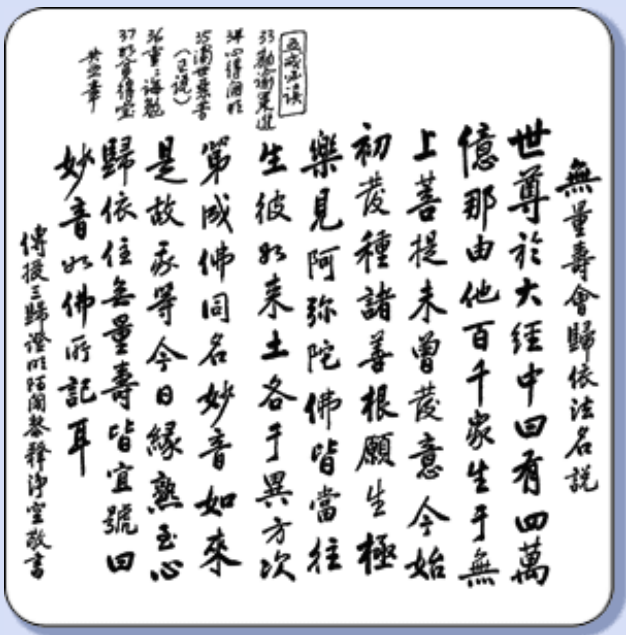 無量壽會歸依法名説
世尊於大经中曰有四萬
億那由他百千衆生于無
上菩提未曾發意今始
初發種諸善根願生極
樂見阿弥陀佛皆當往
生彼如来土各于異方次
第成佛同名妙音如來
是故我等今日緣熟至心
歸依住無量壽皆宜號曰
妙音如佛所記耳
傳授三歸證明陌闍黎釋淨空敬書
五戒必读
33勸諭策進
34心得開明
35濁世惡苦
(王说)
36重重誨勉
37如貧得宝
共五章